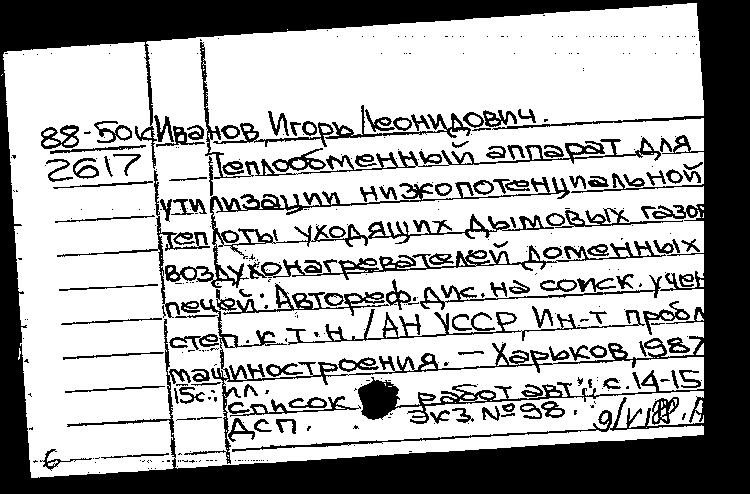 88-50к Иванов, Игорь Леонидович.
2617 Теплообменный аппарат для
утилизации низкопотенциальной
теплоты уходящих дымовых газов
воздухонагревателей доменных
печей: Автореф. дис. на соиск. учен
степ. к.т.н. / АН УССР, Ин-т пробл
машиностроения. — Харьков, 1987
15с.: ил.
Список работ авт.: с. 14-15
ДСП. Экз. № 98.
6